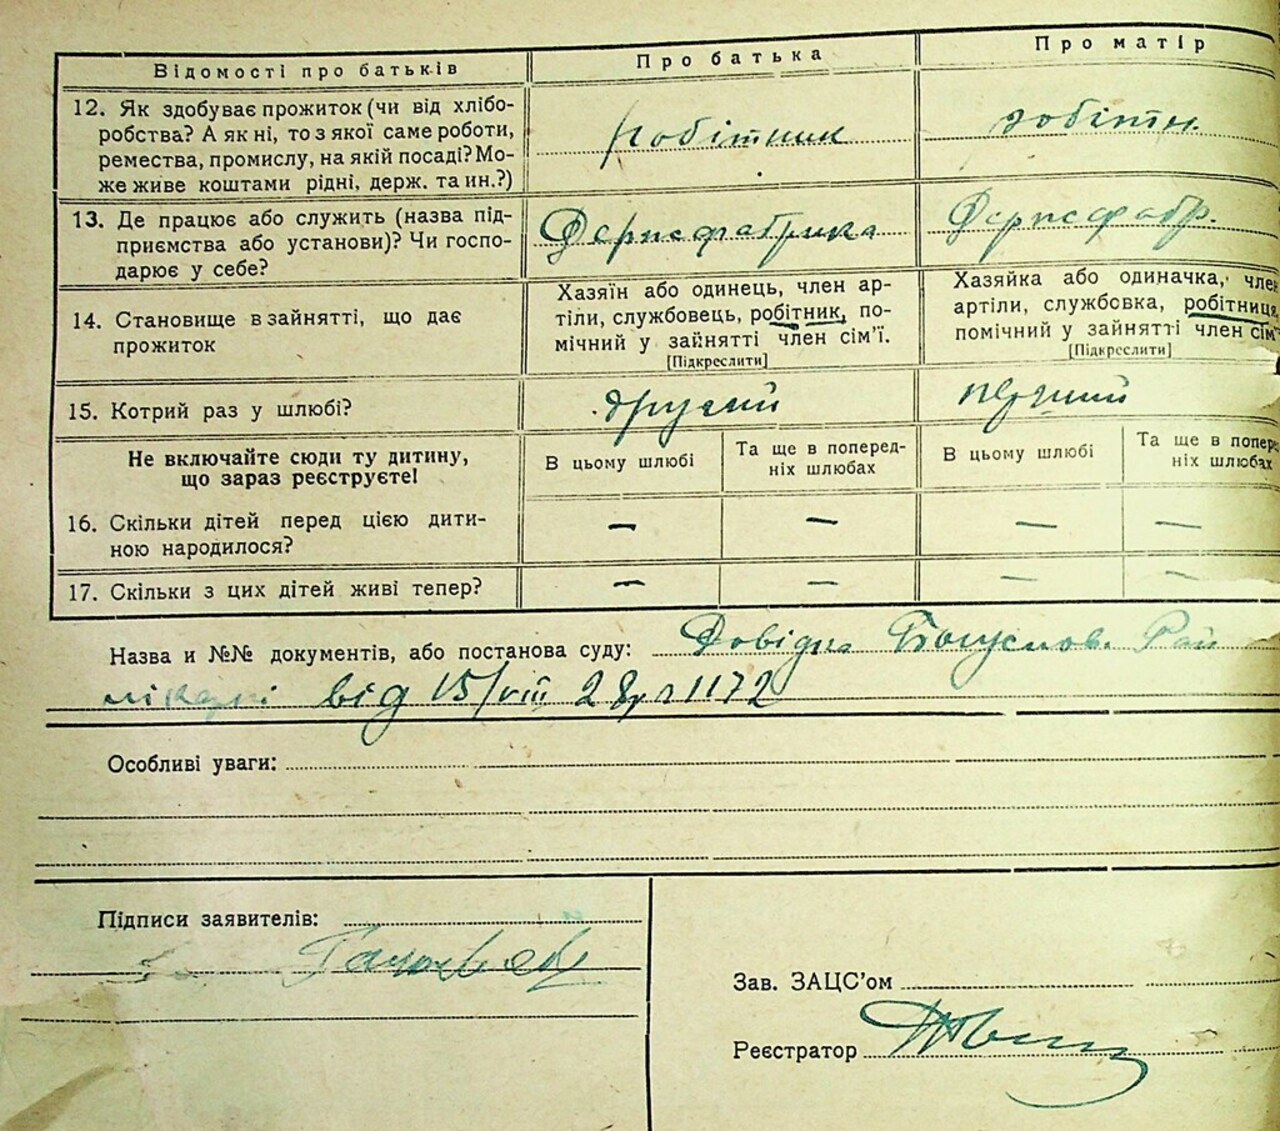 Відомості про батьків
Про батька
Про матір
12. Як здобуває прожиток (чи від хлібо-
робства? А як ні, то з якої саме роботи,
ремества, промислу, на якій посаді? Мо-
же живе коштами рідні, держ. та ин.?)
робітник
робітн.
13. Де працює або служить (назва під-
приємства або установи)? Чи госпо-
дарює у себе?
Держфабрика
Держфабр.
14. Становище в зайнятті, що дає
прожиток
Хазяїн або одинець, член ар-
тілі, службовець, робітник, по-
мічний у зайнятті член сім'ї.
[Підкреслити]
Хазяйка або одиначка, член
артіли, службовка, робітниця,
помічний у зайнятті член сім'
[Підкреслити]
15. Котрий раз у шлюбі?
другий
перший
Не включайте сюди ту дитину,
що зараз реєструєте!
В цьому шлюбі
Та ще в поперед-
ніх шлюбах
В цьому шлюбі
Та ще в попере
ніх шлюбах
16. Скільки дітей перед цією дити-
ною народилося?
— — — —
17. Скільки з цих дітей живі тепер?
— — — —
Назва и №№ документів, або постанова суду: Довідка Богуслов. Рай
лікарні від 15/VIII 28 р 1172
Особливі уваги:
Підписи заявителів:
Зав. ЗАЦС'ом
Реєстратор